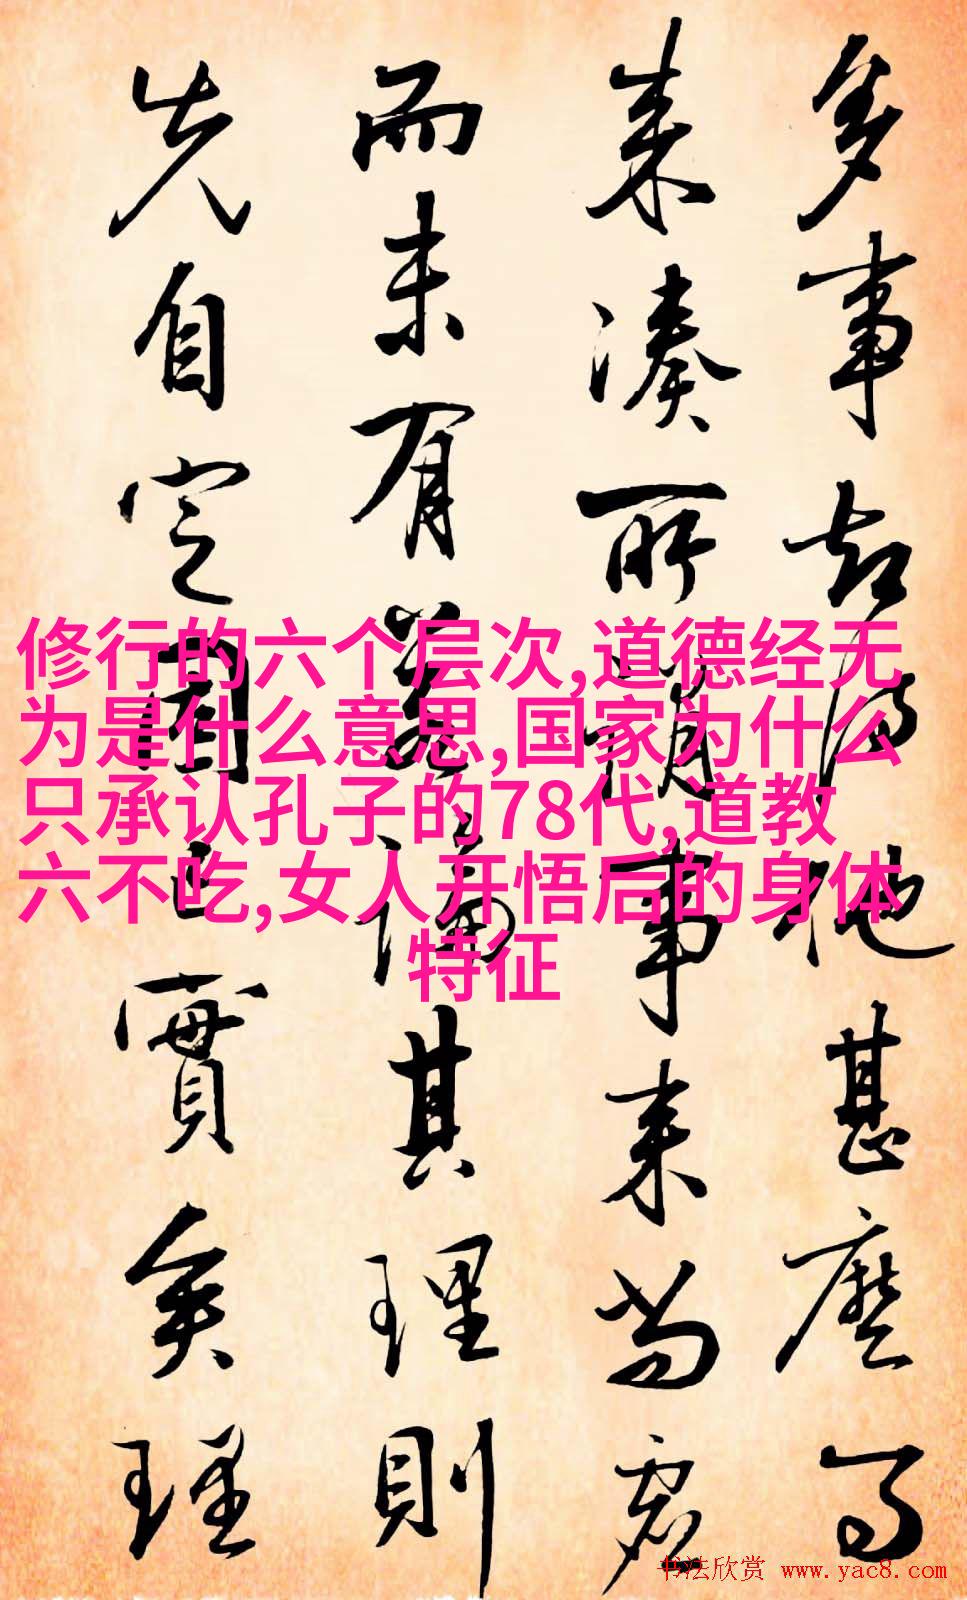 多事都得他甚麼了
来湊所谓事事来当应
而未有善論其理則
先自定固已實矣理
修行的六个层次,道德经无
为是什么意思,国家为什么
只承认孔子的78代,道教
六不吃,女人开悟后的身体
特征
书法欣赏 www.yac8.com